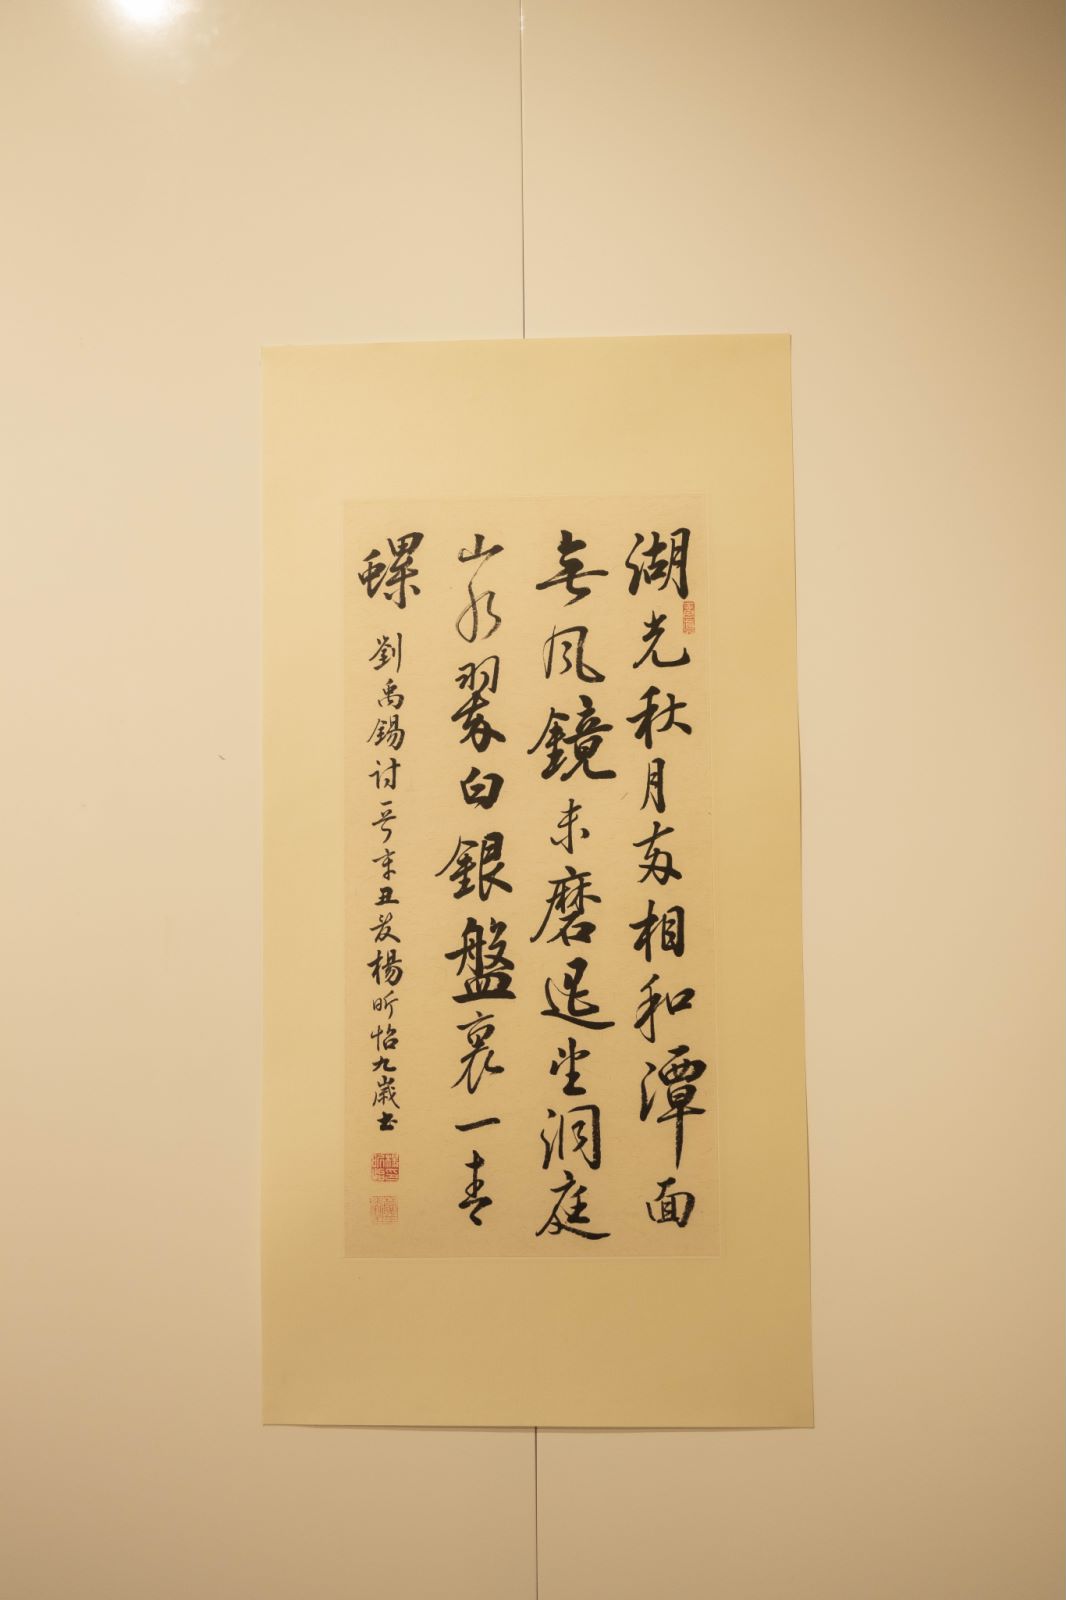 湖光秋月两相和潭面
無风鏡未磨遥望洞庭
山水翠白銀盤裏一青
螺
劉禹錫詩一首辛丑夏楊昕怡九歲书